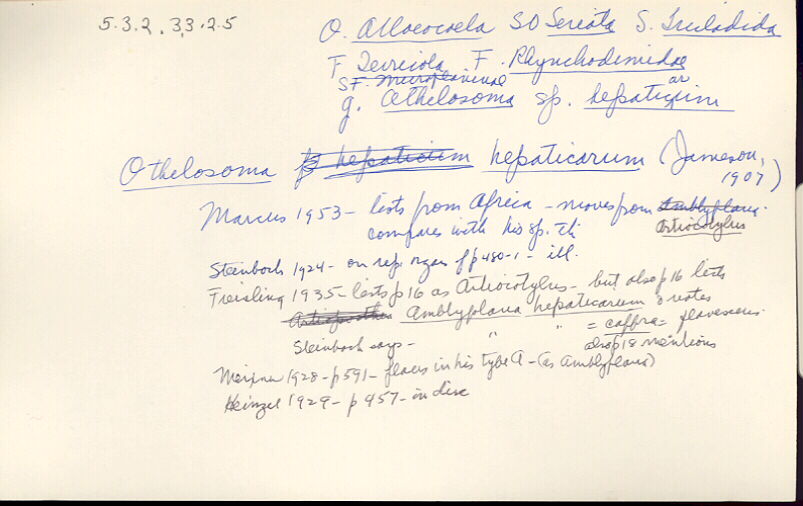 5.3.2.33.2.5
O. Alloeocoela SO Seriata S. Tricladida
F Terricola F. Rhynchodemidae
SF. Microplaninae
g. Othelosoma sp. hepaticarum
Othelosoma hepaticum hepaticarum (Jameson,
1907)
Marcus 1953 - lists from Africa - moves from Amblyplana
compares with his sp. Artiocotylus
Steinbock 1924 - on rep. organs f p 480-1 - ill.
Freisling 1935 - lists p 16 as Artiocotylus - but also p 16 lists
Amblyplana hepaticarum & notes
" " = caffra = flavescens
Steinbock says - also p 18 mentions
Meixner 1928 - p 591 - places in his type A - (as Amblyplana)
Heinzel 1929 - p 457 - in disc